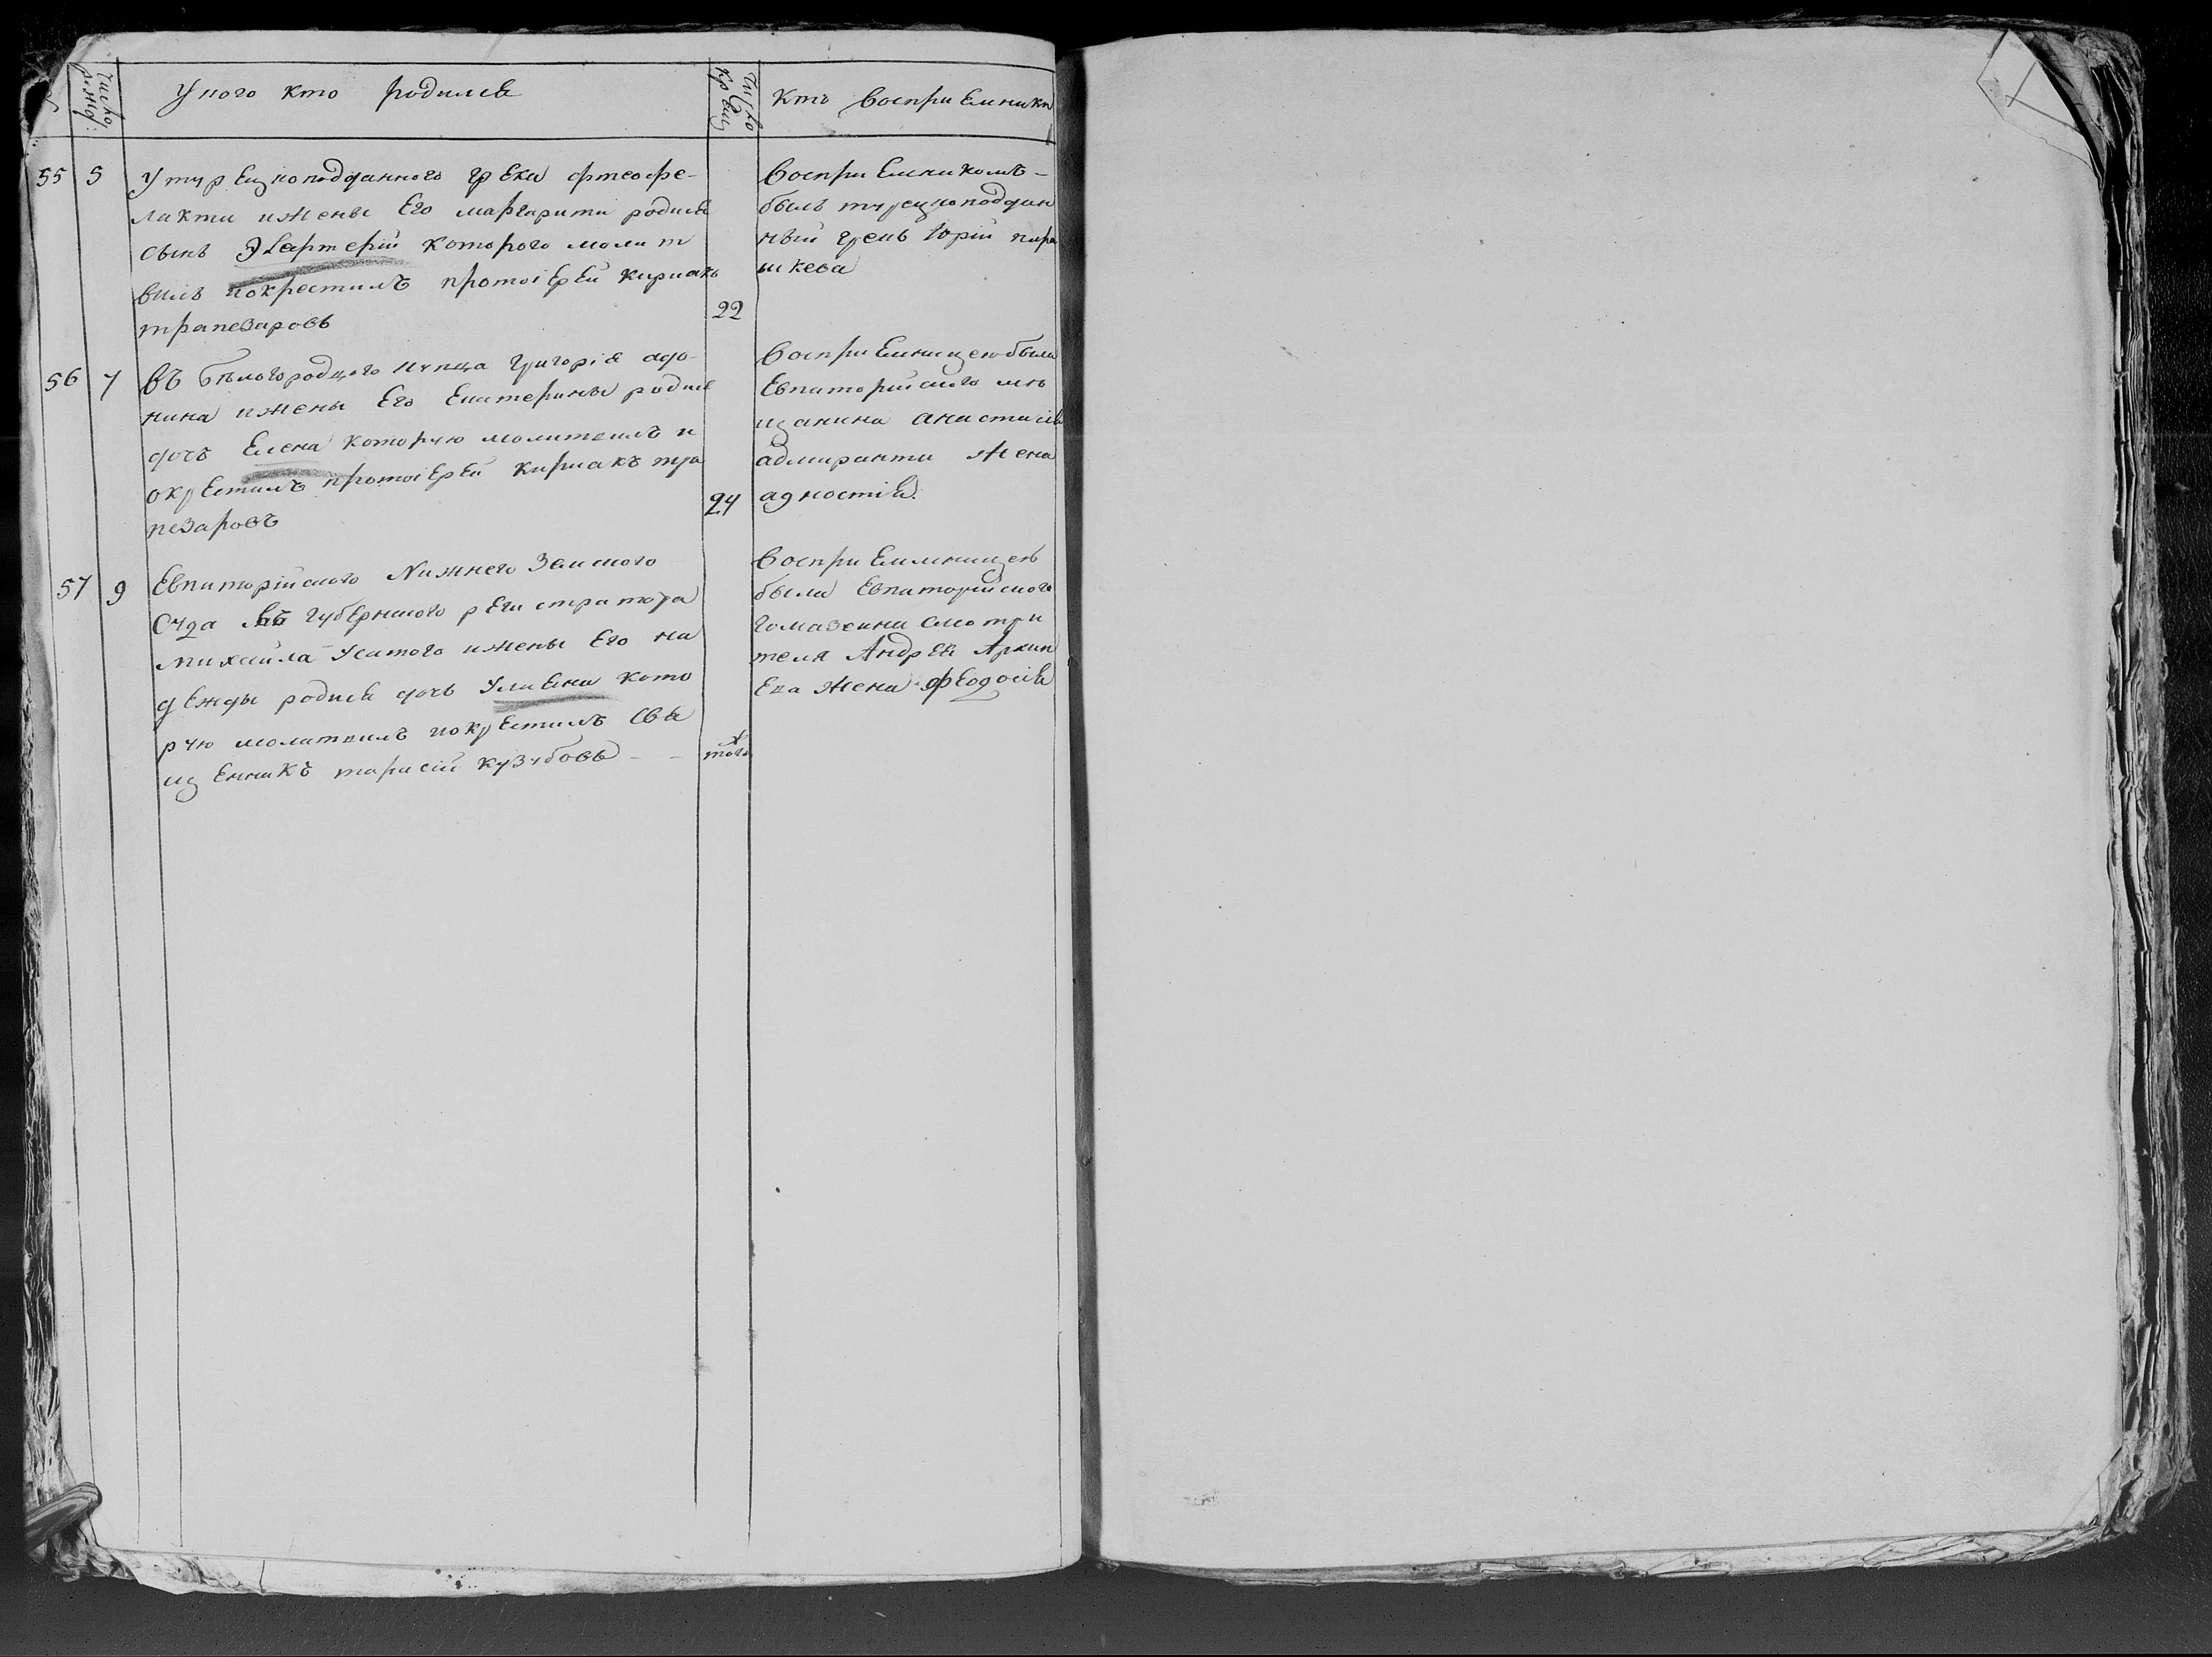 Число рожд:
У кого кто родился
Число крещ
Кто Восприемники
55 5 У турецкоподданного грека фтеофе-
лакти и жены Его маргарити родился
сынъ Элефтерий которого молит
вилъ покрестилъ протоіерей Кириакъ
трапезаровъ
22
Восприемникомъ -
былъ турецкоподдан
ный грекъ Юрій пара
шкева
56 7 въ бѣлогородцкого купца григорія адо-
нина и жены Его Екатерины родися
дочь Елена которую молитвилъ и
окрестилъ протоіерей Кириакъ тра
пезаровъ
24
Восприемницею была
Евпаторійского мѣ
щанина анастасія
адмиранти жена
анастія.
57 9 Евпаторійского Нижнего Земского
Суда губернского регистратора
михаила Усатого и жены Его на
дежды родися дочь Улиена кото
рую молитвилъ покрестилъ Свя
щенникъ тарасій кузубовъ - -
того
Восприемницею
была Евпаторійского
гомазеина смотри
теля Андрея Архип
Ева жена феодосія